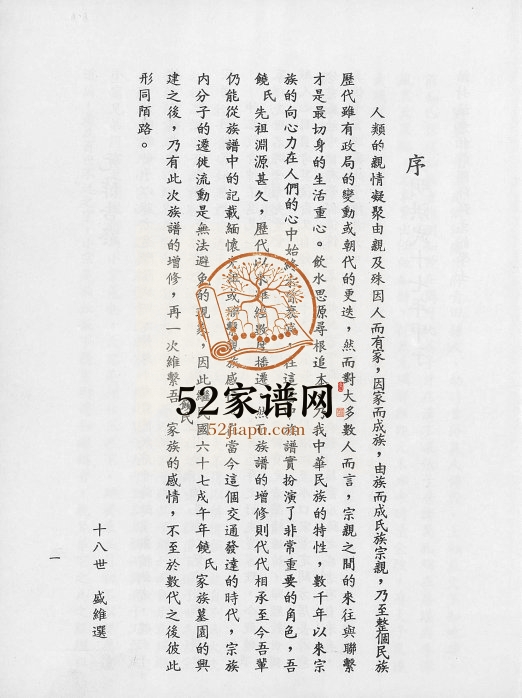 序
人類的親情凝聚由親及殊因人而有家，因家而成族，由族而成氏族宗親，乃至整個民族
歷代雖有政局的變動或朝代的更迭，然而對大多數人而言，宗親之間的來往與聯繫
才是最切身的生活重心。飲水思源尋根追本乃我中華民族的特性，數千年以來宗
族的向心力在人們的心中始終 在這 族譜實扮演了非常重要的角色，吾
饒氏先祖淵源甚久，歷代以來 經數度播遷 然 族譜的增修則代代相承至今吾輩
仍能從族譜中的記載緬懷先 或聯繫親族感 在當今這個交通發達的時代，宗族
內分子的遷徙流動是無法避免的現象，因此繼民國六十七戌午年饒氏家族墓園的興
建之後，乃有此次族譜的增修，再一次維繫吾 氏家族的感情，不至於數代之後彼此
形同陌路。
十八世 盛維選
一
52家谱网
52jiapu.com